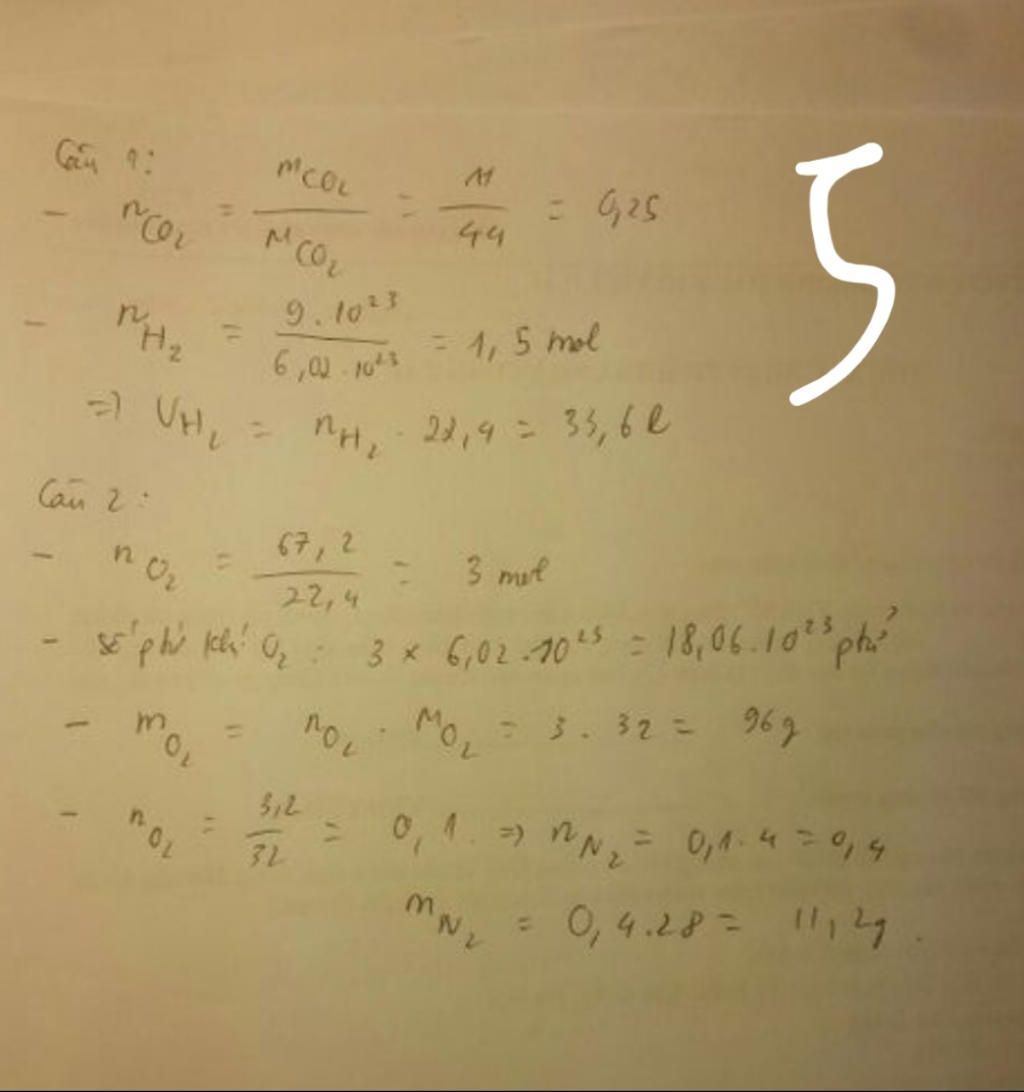 Câu 1:
- nCO2 = mCO2 / MCO2 = 11 / 44 = 0,25
5
- nH2 = 9.10^23 / 6,02.10^23 = 1,5 mol
=> VH2 = nH2 . 22,4 = 33,6 l
Câu 2:
- nO2 = 67,2 / 22,4 = 3 mol
- số ptử khí O2 : 3 × 6,02.10^23 = 18,06.10^23 ptử
- mO2 = nO2 . MO2 = 3 . 32 = 96g
- nO2 = 3,2 / 32 = 0,1. => nN2 = 0,1.4 = 0,4
mN2 = 0,4.28 = 11,2g.